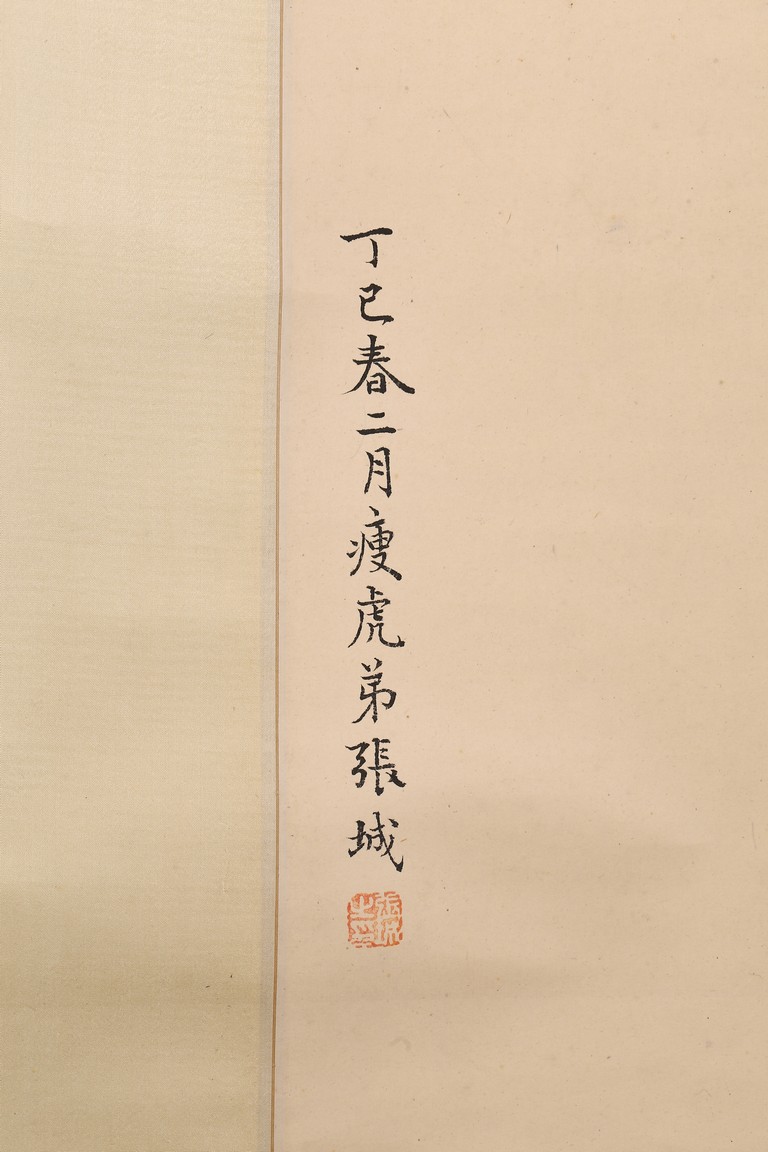 丁巳春二月瘦虎弟張城